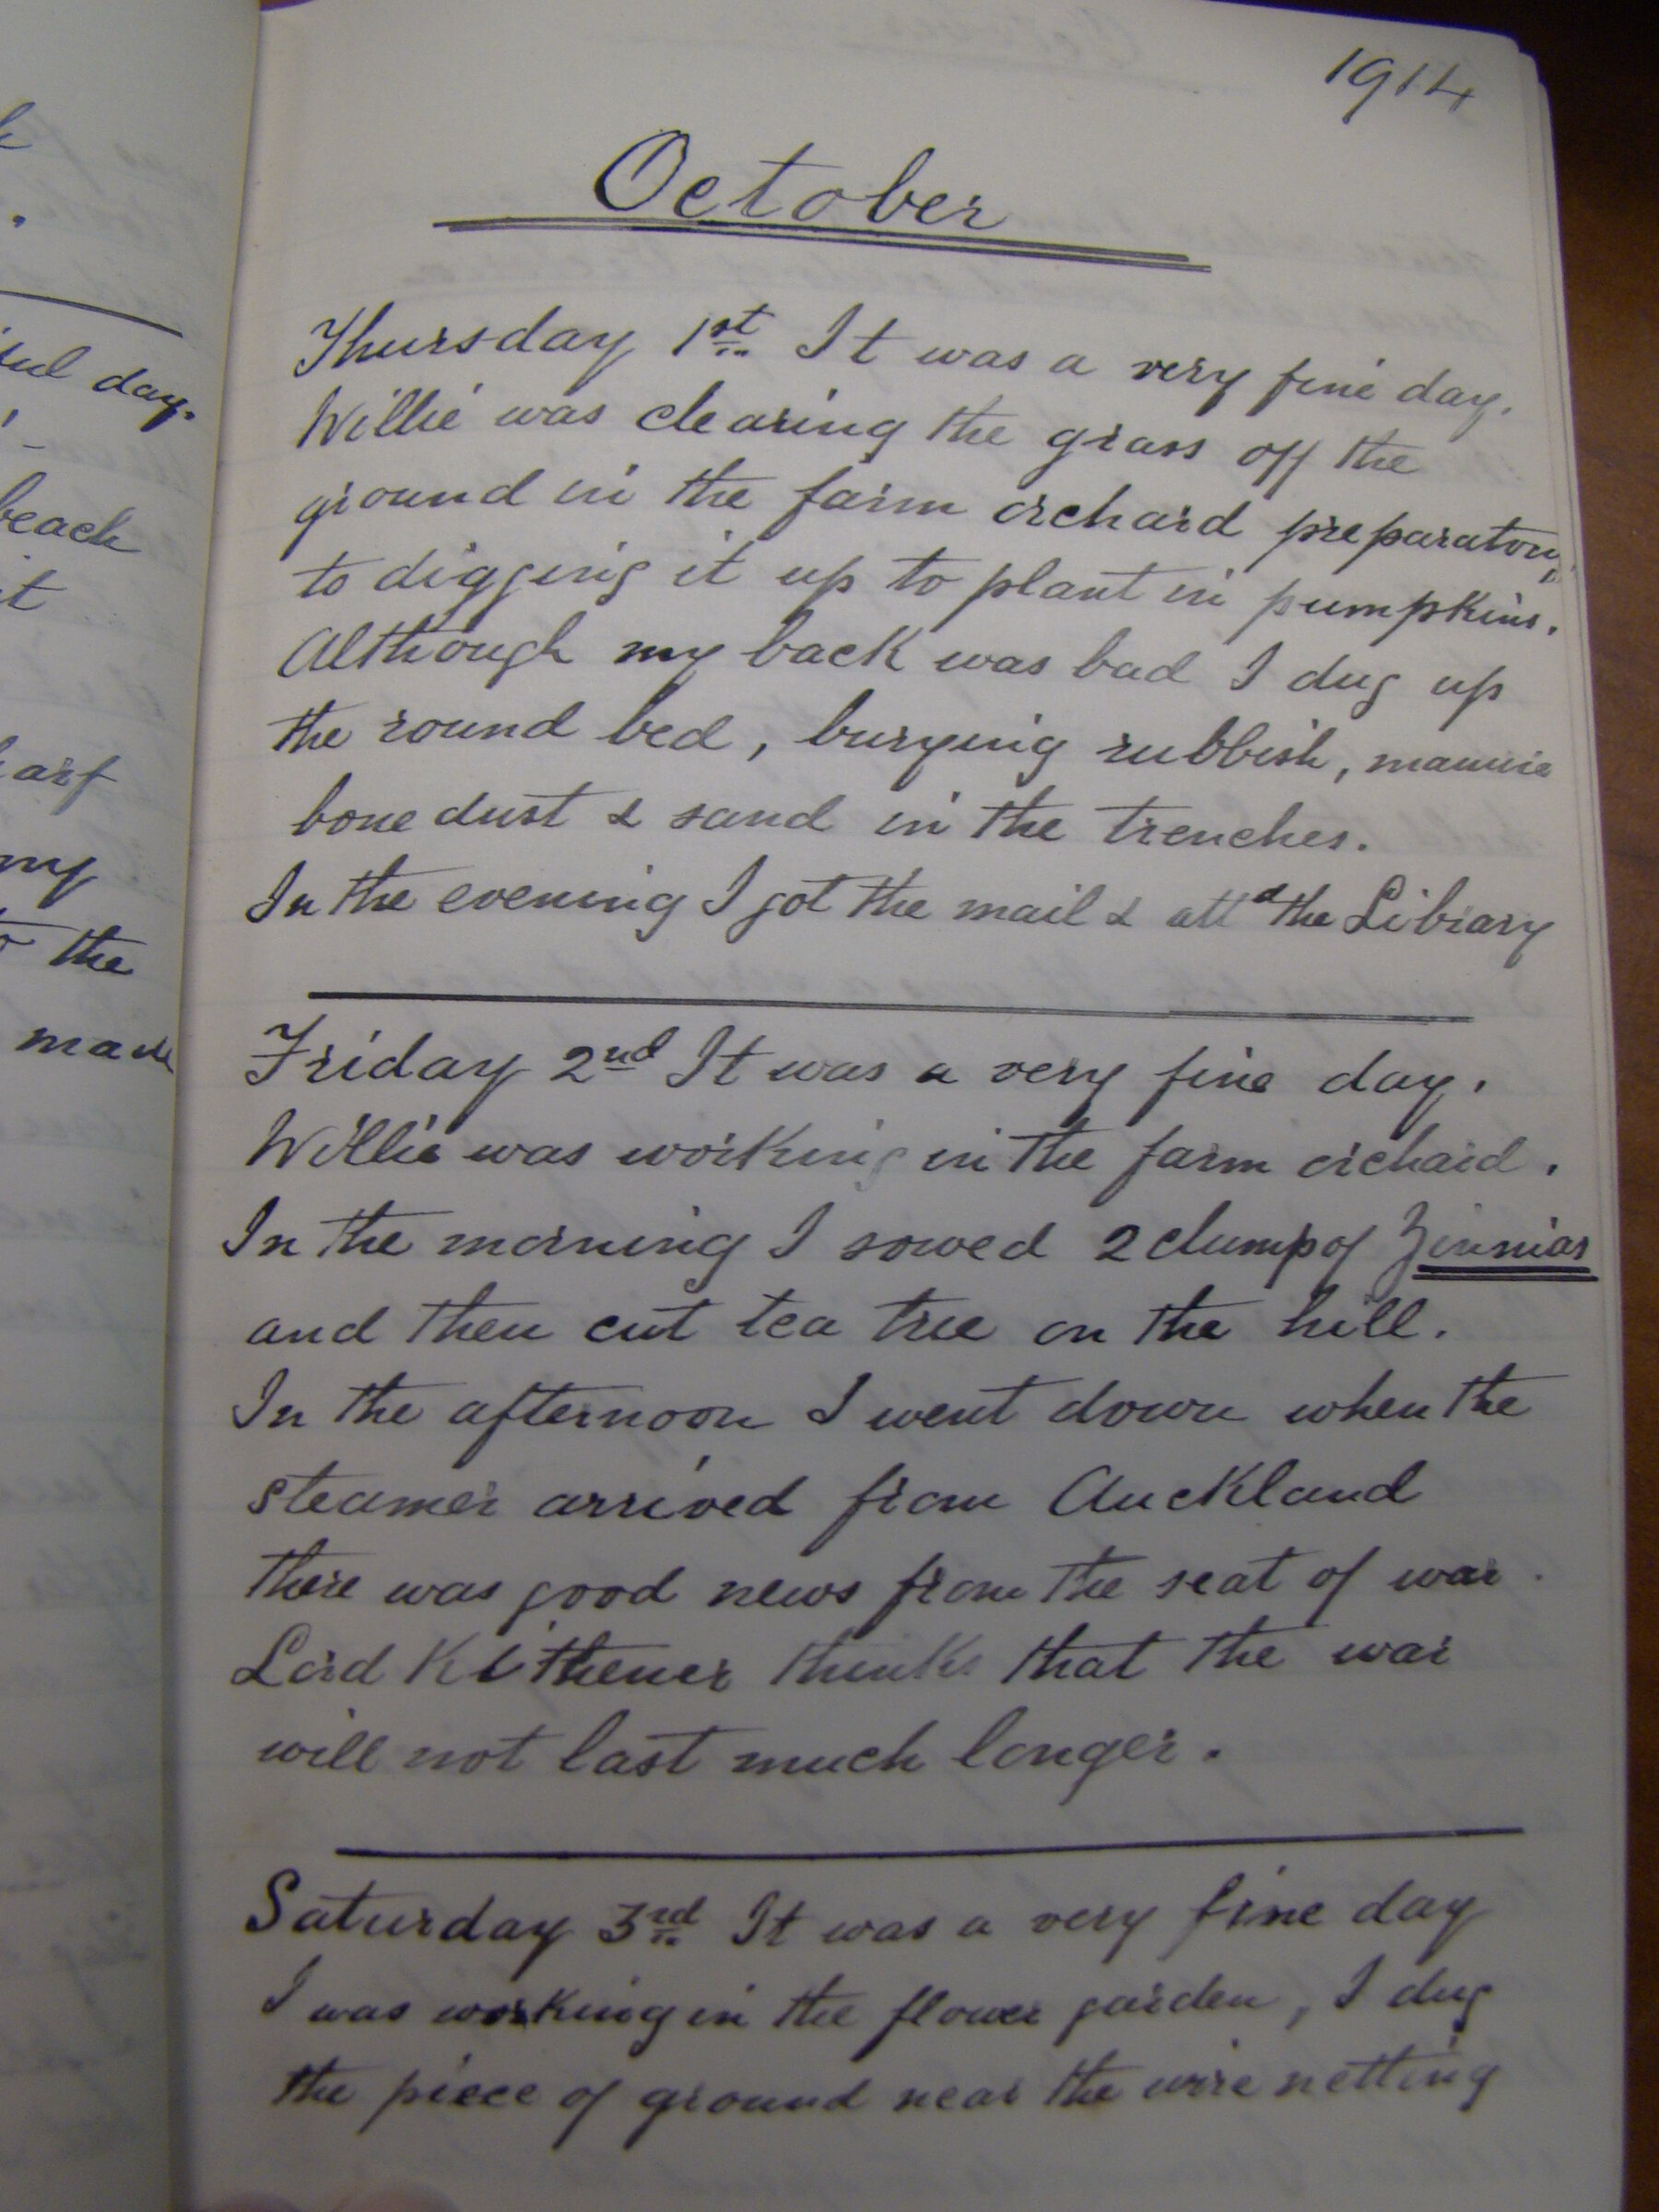 1914
October
Thursday 1st It was a very fine day.
Willie was clearing the grass off the
ground in the farm orchard preparatory
to digging it up to plant in pumpkins.
Although my back was bad I dug up
the round bed, burying rubbish, manure
bone dust & sand in the trenches.
In the evening I got the mail & attd the Library
Friday 2nd It was a very fine day.
Willie was working in the farm orchard.
In the morning I sowed 2 clump of Zinnias
and then cut tea tree on the hill.
In the afternoon I went down when the
steamer arrived from Auckland
there was good news from the seat of war.
Lord Kithener thinks that the war
will not last much longer.
Saturday 3rd It was a very fine day
I was working in the flower garden, I dug
the piece of ground near the wire netting
day.
beach
it
my
the
made